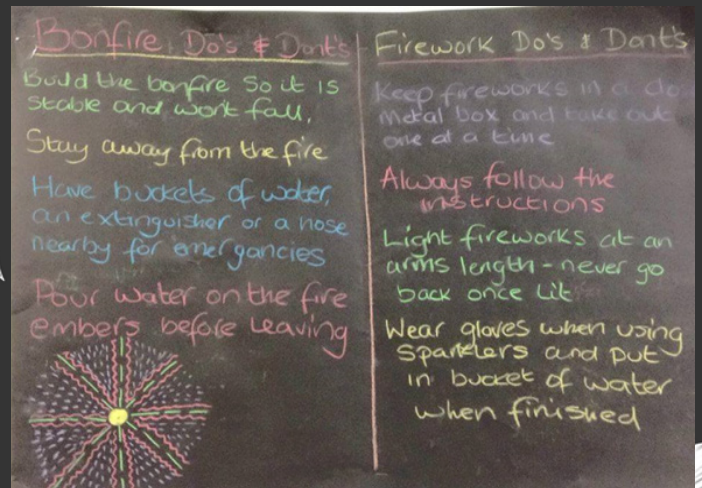 Bonfire Do's & Dont's
Build the bonfire so it is
stable and wont fall.
Stay away from the fire
Have buckets of water,
an extinguisher or a hose
nearby for emergancies
Pour water on the fire
embers before leaving
Firework Do's & Dont's
Keep fireworks in a clo
metal box and take out
one at a time
Always follow the
instructions
Light fireworks at an
arms length - never go
back once lit
Wear gloves when using
Sparklers and put
in bucket of water
when finished